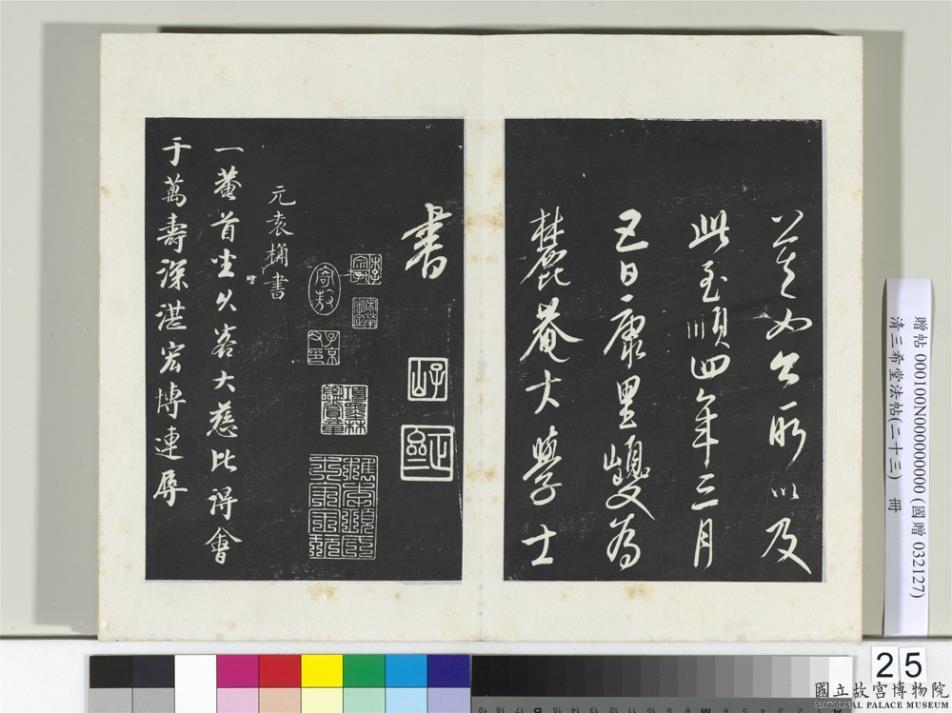 草也公所以及
此至順四年三月
五日康里巎爲
麓菴大學士
書
元袁桷書
一菴首坐久客大慈比得會
于萬壽深湛宏博連辱
贈帖 000100N000000000 (國贈 032127)
清三希堂法帖(二十三) 冊
25
國立故宮博物院
NATIONAL PALACE MUSEUM